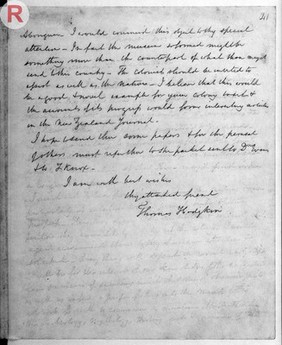 R
Aborigines I would commend this object to thy special
attention - In fact the museum so formed might be
something more than the counterpart of what thou mayst
send to this country - The Colonist should be invited to
as well as the Native - I believe that this would
be a good & novel example for your colony to set &
the accounts of its progress would form interesting articles
in the New Zealand Journal.
I hope to send thee some papers & for the perusal
of others must refer thee to the packet sent to Dr Evans
& to F Knox -
I am with best wishes
thy attached friend
Thomas Hodgkin